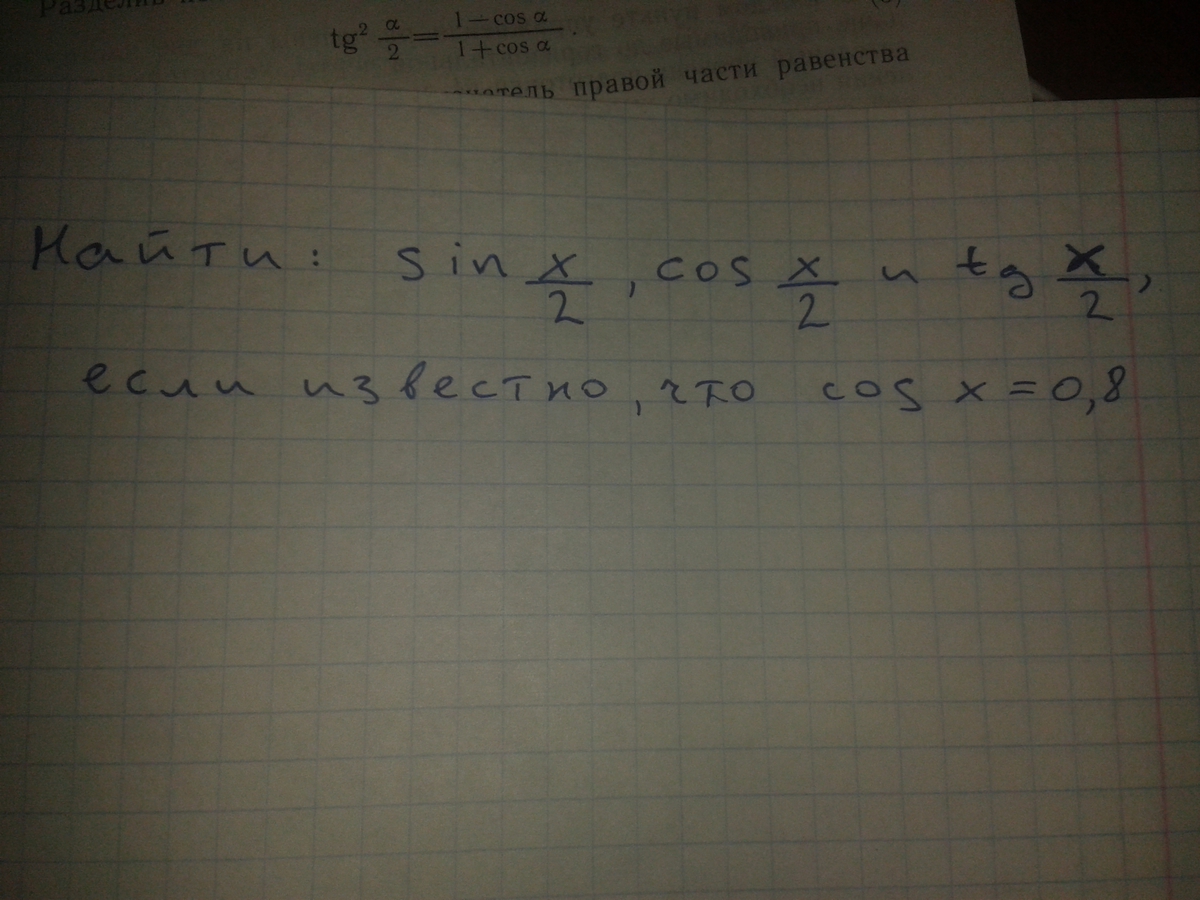 Разделив
tg² α/2 = (1 − cos α)/(1 + cos α).
правой части равенства
Найти: sin x/2, cos x/2 и tg x/2,
если известно, что cos x = 0,8